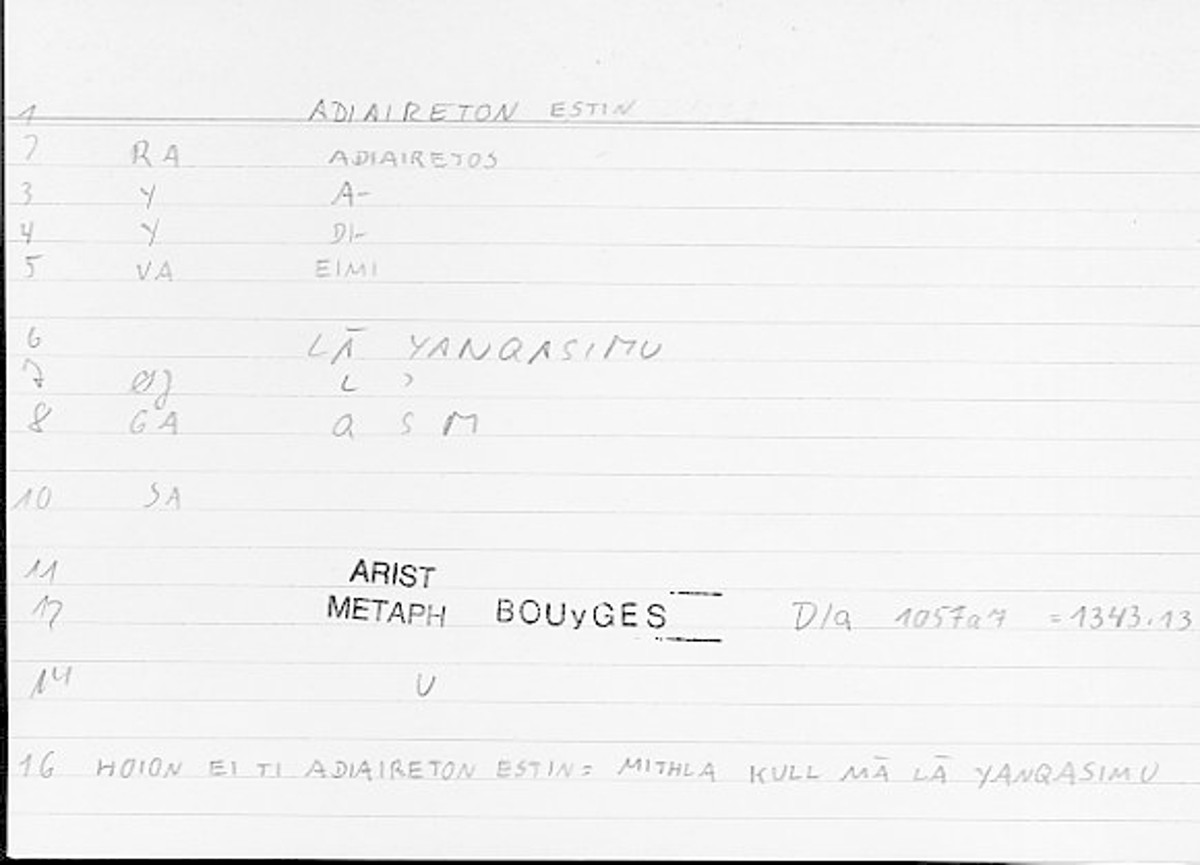 1 ADIAIRETON ESTIN
2 RA ADIAIRETOS
3 Y A-
4 Y DI-
5 VA EIMI
6 LĀ YANQASIMU
7 L ʾ
8 GA Q S M
10 SA
11 ARIST
12 METAPH BOUyGES D/a 1057a7 =1343.13
14 U
16 HOION EI TI ADIAIRETON ESTIN = MITHLA KULL MĀ LĀ YANQASIMU